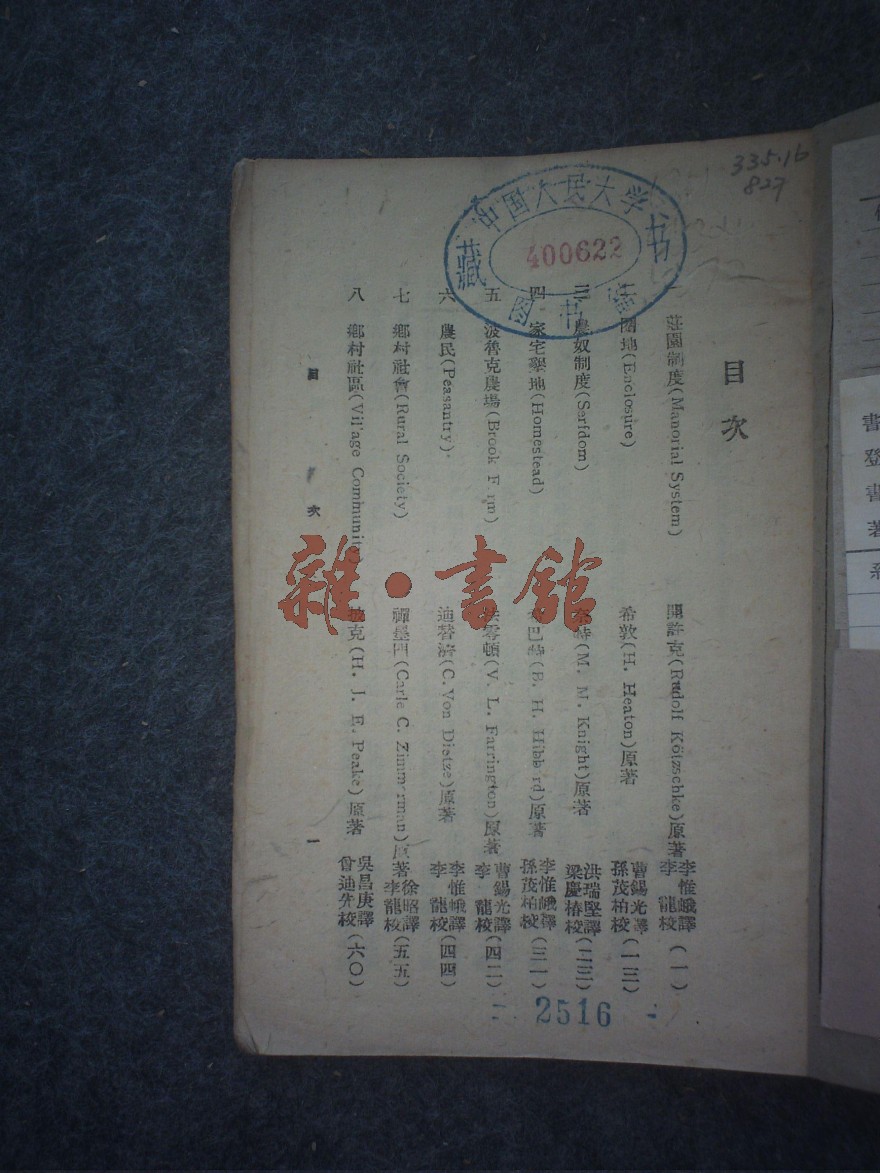 335.16
827
中国人民大学
图书馆
藏书
400622
目次
一 莊園制度(Manorial System) (Rudolf Kötzschke)原著 李惟峨譯 李龍校(一)
二 圈地(Enclosure) 希敦(H. Heaton)原著 曹錫光譯 孫茂柏校
三 農奴制度(Serfdom) 奈特(M. M. Knight)原著 洪瑞堅譯 梁慶椿校
四 家宅墾地(Homestead) (B. H. Hibbard)原著 李惟峨譯 孫茂柏校(三一)
五 波魯克農場(Brook Farm) 法零頓(V. L. Farrington)原著 曹錫光譯 李龍校(四二)
六 農民(Peasantry) 迪替(C. Von Dietze)原著 李惟峨譯 李龍校(四四)
七 鄉村社會(Rural Society) (Carle C. Zimmerman)原著 徐昭譯 李龍校(五五)
八 鄉村社區(Village Community) 克(H. J. E. Peake)原著 吳昌庚譯 曾迪先校(六〇)
目次
一
雜·書館
2516
書
登
書
著